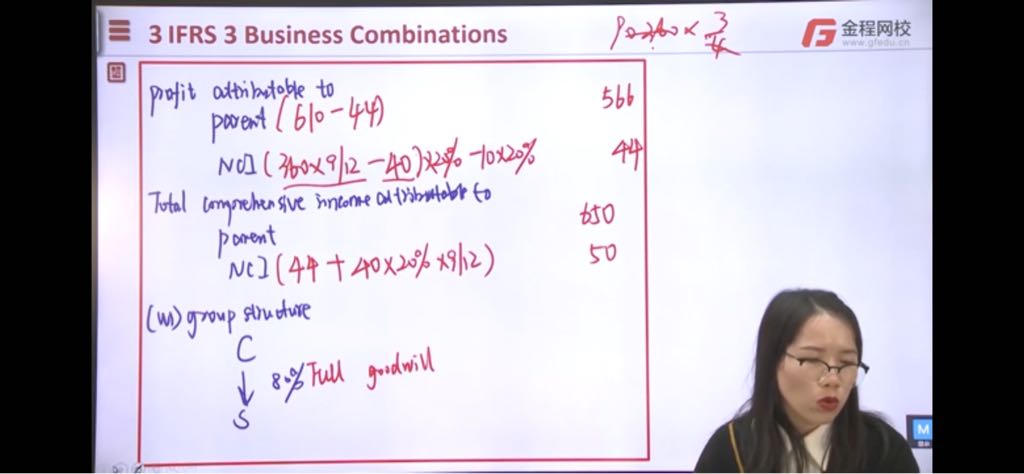 3 IFRS 3 Business Combinations
× 3/4
金程网校
www.gfedu.cn
profit attributable to
parent (610-44) 566
NCI (360×9/12 -40)×20% -10×20% 44
Total comprehensive income attributable to
parent 650
NCI (44 + 40×20% ×9/12) 50
(W1) group structure
C
↓ 80% Full goodwill
S
M